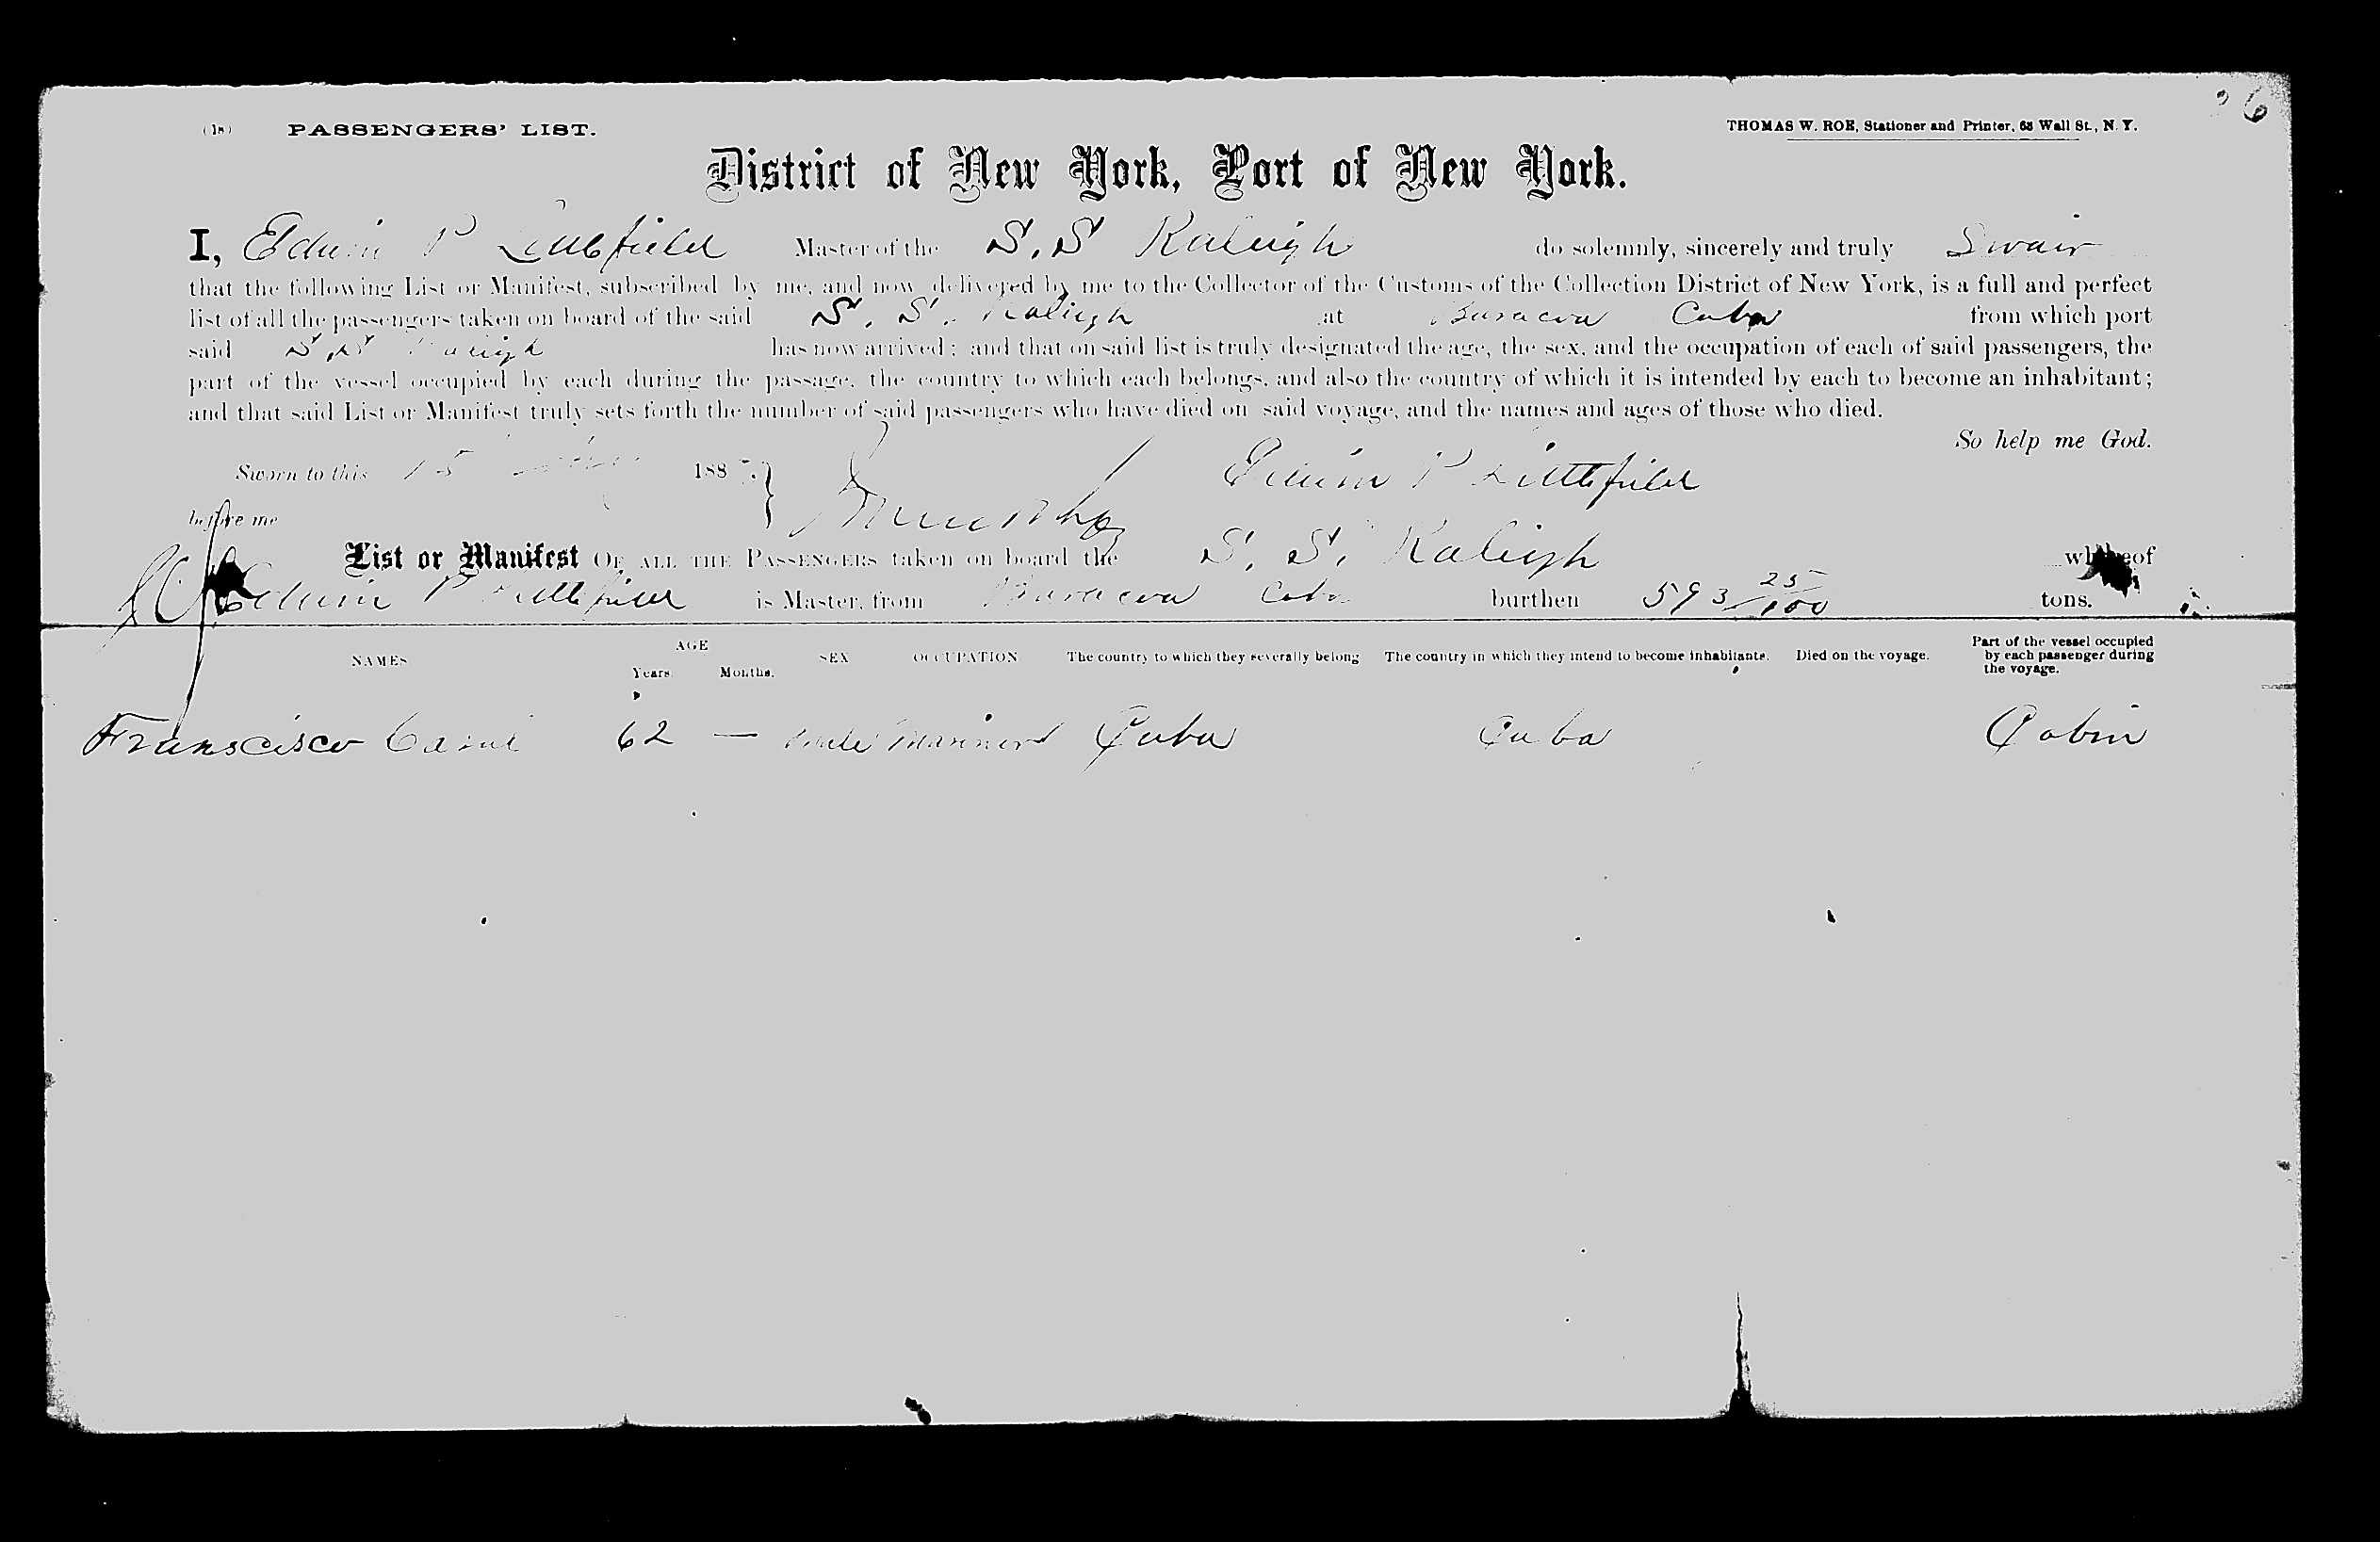 (18) PASSENGERS' LIST. THOMAS W. ROE, Stationer and Printer, 63 Wall St., N. Y. 6
District of New York, Port of New York.
I, Edwin P Littlefield Master of the S.S Raleigh do solemnly, sincerely and truly Swair
that the following List or Manifest, subscribed by me, and now delivered by me to the Collector of the Customs of the Collection District of New York, is a full and perfect
list of all the passengers taken on board of the said S. S. Raleigh at Baracoa Cuba from which port
said S.S Raleigh has now arrived; and that on said list is truly designated the age, the sex, and the occupation of each of said passengers, the
part of the vessel occupied by each during the passage, the country to which each belongs, and also the country of which it is intended by each to become an inhabitant;
and that said List or Manifest truly sets forth the number of said passengers who have died on said voyage, and the names and ages of those who died.
So help me God.
Sworn to this 15 188 Edwin P Littlefield
before me
List or Manifest OF ALL THE PASSENGERS taken on board the S. S. Raleigh whereof
Edwin P Littlefield is Master, from Baracoa Cuba burthen 593 25/100 tons.
NAMES AGE Years. Months. SEX OCCUPATION The country to which they severally belong The country in which they intend to become inhabitants. Died on the voyage. Part of the vessel occupied by each passenger during the voyage.
Franscisco 62 — Male Mariner Cuba Cuba Cabin